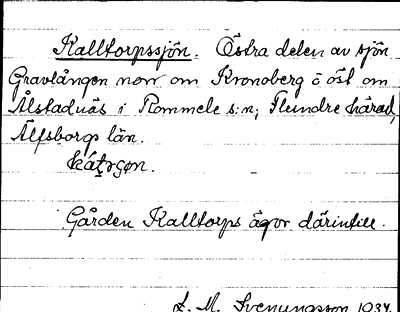 Kalltorpssjön. Östra delen av sjön
Gravlången norr om Kronoberg o öst om
Ålstadnäs i Rommele s:n; Flundre härad,
Älfsborgs län.
Gården Kalltorps ägor därintill.
L. M. Svenungsson 1934.